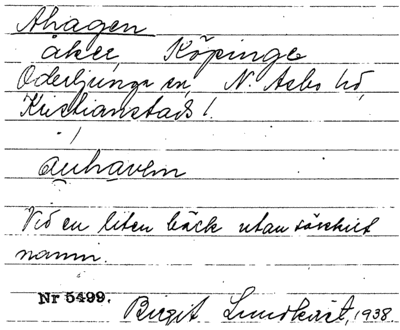 Ahagen
åker, Köpinge
Oderljunga sn, N. Asbo hd,
Kristianstads l.
auhavɘn
Vid en liten bäck utan särskilt
namn.
Nr 5499. Birgit Lundkvist, 1938